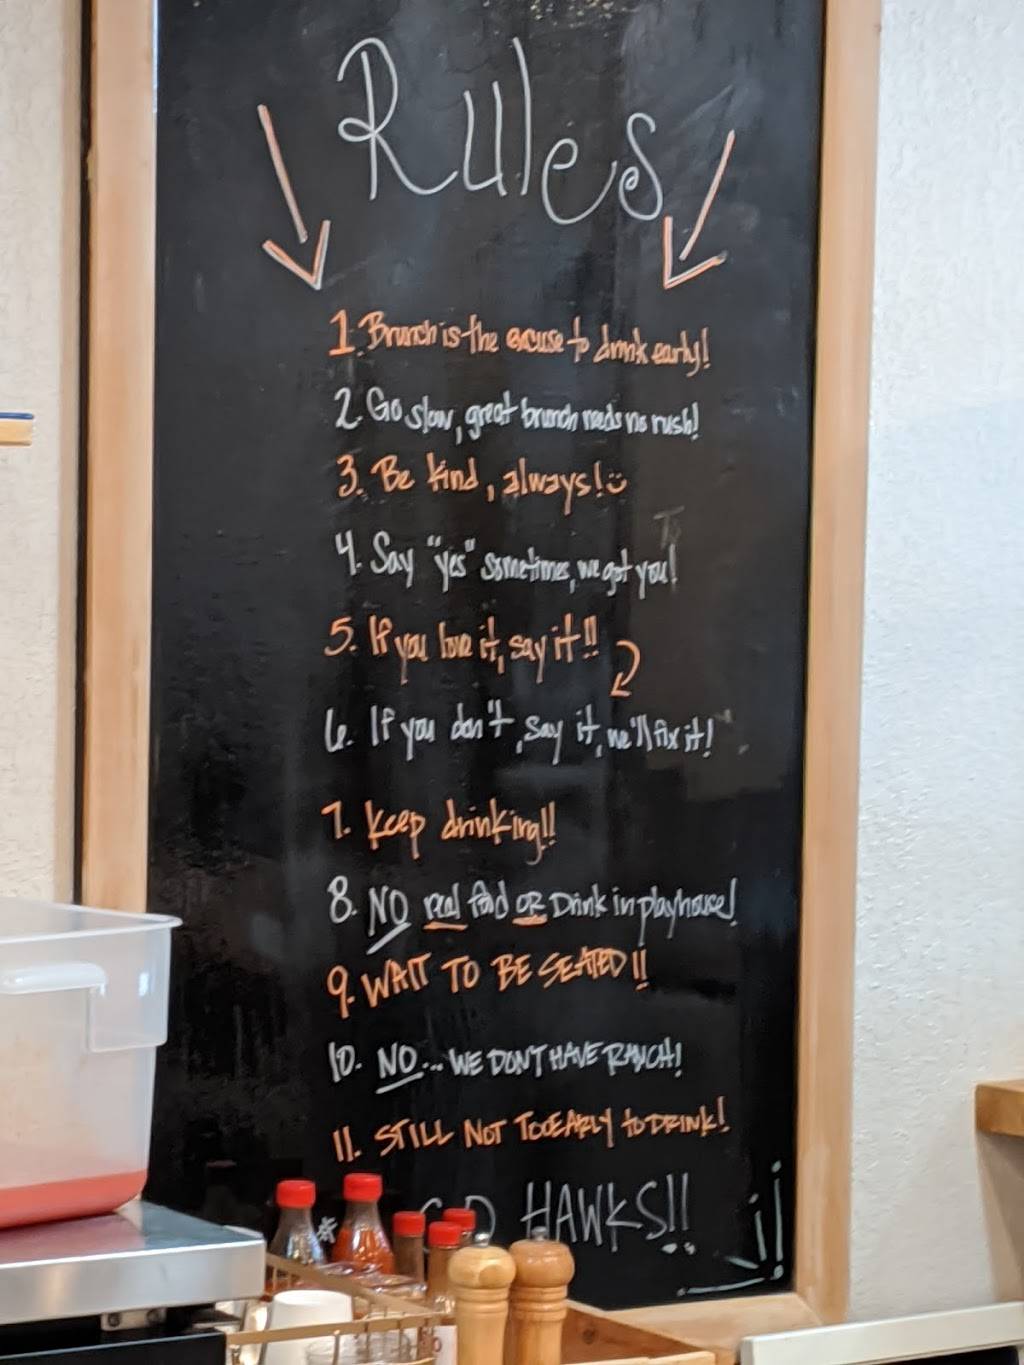 Rules
1. Brunch is the excuse to drink early!
2. Go slow, great brunch needs no rush!
3. Be kind, always! :)
4. Say "yes" sometimes, we got you!
5. If you love it, say it!!
6. If you don't, say it, we'll fix it!
7. Keep drinking!!
8. NO real food OR Drink in playhouse!
9. WAIT TO BE SEATED!!
10. NO... WE DON'T HAVE RANCH!
11. STILL NOT TOO EARLY to DRINK!
# GO HAWKS!!